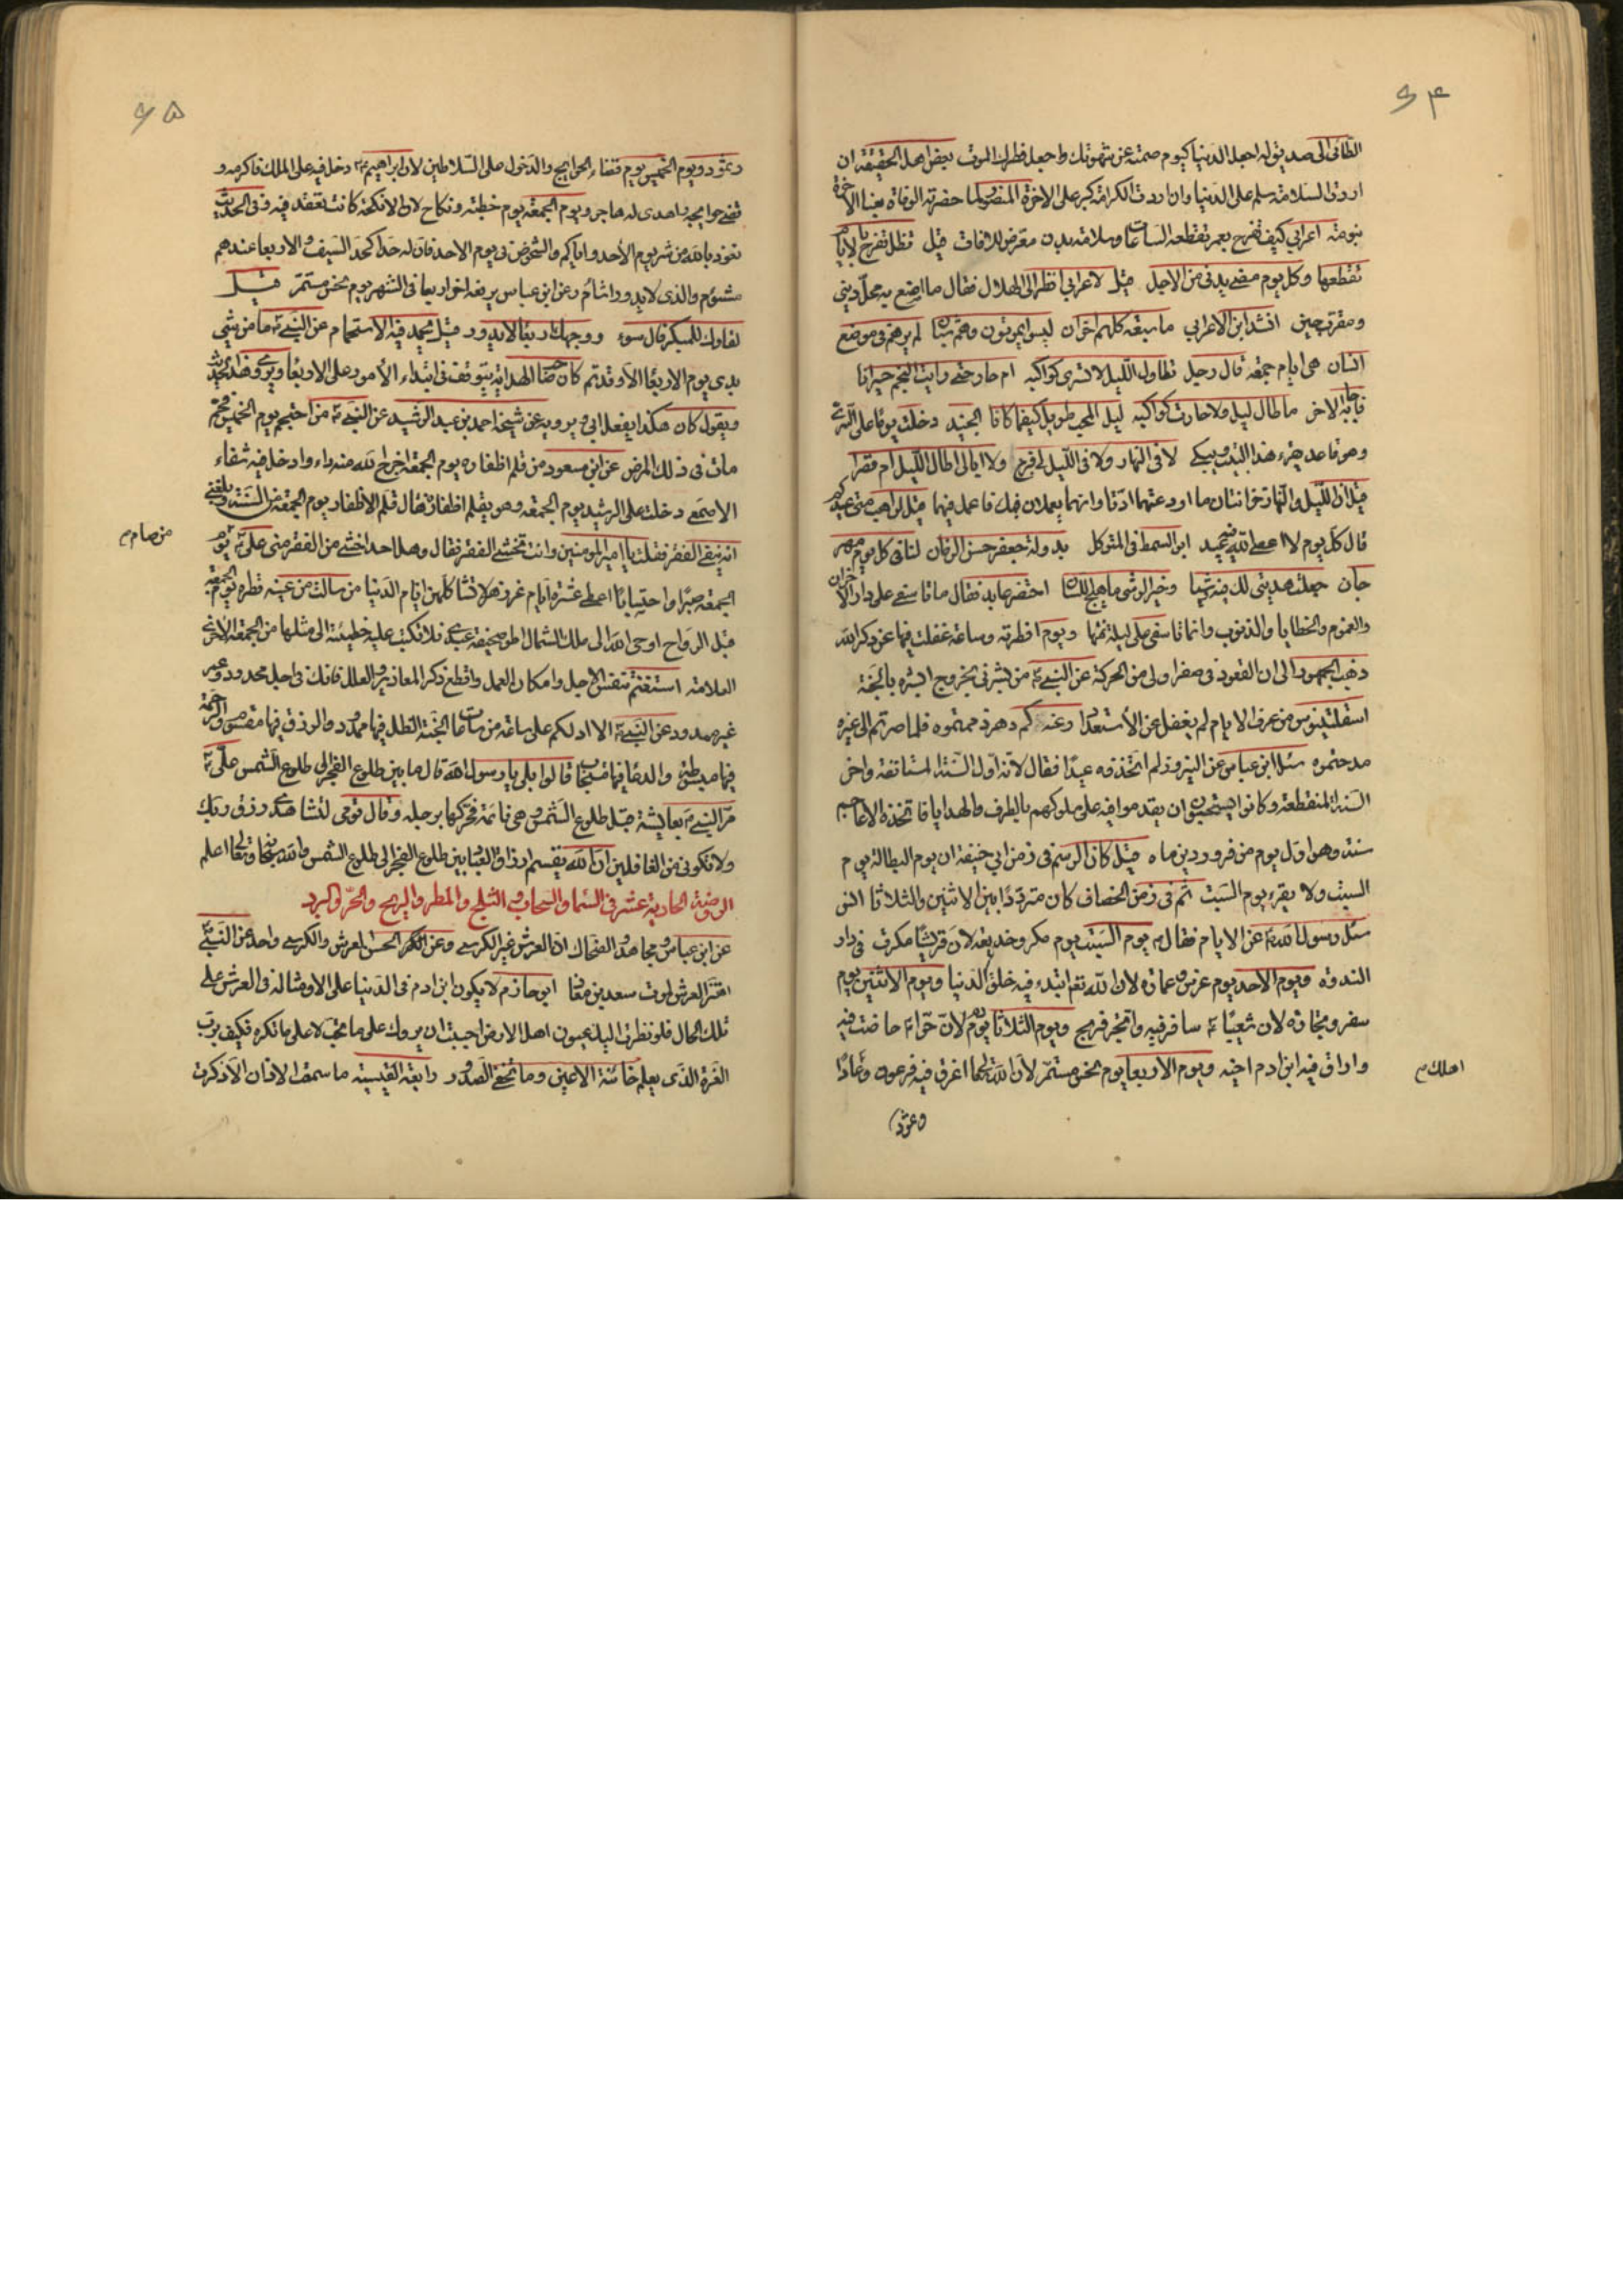 ۶۴
الطائی الی صدیق له اجعل الدنیا کیوم صمته عن شهوتک واجعل فطرک الموت بعض اهل الحقیقة ان
اردت السلامة سلم علی الدنیا وان اردت الکرامة کبر علی الاخرة المنصور لما حضرته الوفاة بعنا الاخرة
بنومة اعرابی کیف تفرح بعمر تقطعه الساعات وسلامة بدن معرض للافات قیل نظل نفرح بالایام
نقطعها وکل یوم مضی یدنی من الاجل قیل لاعرابی انظر الی الهلال فقال ما اصنع به محل دینی
ومقرب حین انشد ابن الاعرابی ما سبعة کلهم اخوان لیس یموتون وهم شبان لم یرهم فی موضع
انسان هی ایام جمعة قال رجل تطاول اللیل لا تسری کواکبه ام حار حتی رایت النجم حیرانا
فاجابه الاخر ما طال لیل ولا حارت کواکبه لیل المحب طویل کیفما کانا الجنید دخلت یوما علی السری
وهو قاعد یقرء هذا البیت ویبکی لا فی النهار ولا فی اللیل لی فرج ولا ابالی اطال اللیل ام قصرا
قیل ان اللیل والنهار خزانتان ما اودعتهما ادتا وانهما یعملان فیک فاعمل فیهما قیل لراهب متی عیدکم
قال کل یوم لا اعصی الله فیه عید ابو السمط فی المتوکل بدولة جعفر حسن الزمان لنا فی کل یوم مهر
جان جعلت هدیتی لک فیه وشیا وخیر الوشی ما نسج اللسان احتضر عابد فقال ما تاسفی علی دار الاحزان
والغموم والخطایا والذنوب وانما تاسفی علی لیلة نمتها ویوم افطرته وساعة غفلت فیها عن ذکر الله
ذهب الجمهور الی ان القعود فی صفر اولی من الحرکة عن النبی من بشرنی بخروج صفر ابشره بالجنة
من عرف الایام لم یغفل عن الاستعداد وعنه کم دهر ذممتموه فلما صرتم الی غیره
مدحتموه سئل ابن عباس عن النیروز لم اتخذوه عیدا فقال لانه اول السنة المستانفة واخر
السنة المنقطعة وکانوا یستحبون ان یقدموا فیه علی ملوکهم بالطرف والهدایا فاتخذه الاعاجم
سنة وهو اول یوم من فروردین ماه قیل کان الرسم فی زمن ابی حنیفة ان یوم البطالة یوم
السبت ولا یقرء یوم السبت ثم فی زمن الخصاف کان مترددا بین الاثنین والثلاثا انس
سئل رسول الله عن الایام فقال یوم السبت یوم مکر وخدیعة لان قریشا مکرت فی دار
الندوة ویوم الاحد یوم غرس وعمارة لان الله تعم ابتدء فیه خلق الدنیا ویوم الاثنین یوم
سفر وتجارة لان شعیبا سافر فیه واتجر فربح ویوم الثلاثا یوم دم لان حواء حاضت فیه
واراق فیه ابن ادم اخیه ویوم الاربعا یوم نحس مستمر لان الله تعالی اغرق فیه فرعون وعادا
اهلک
وثمود
۶۵
وثمود ویوم الخمیس یوم قضاء الحوایج والدخول علی السلاطین لان ابراهیم دخل فیه علی الملک فاکرمه و
قضی حوایجه واهدی له هاجر ویوم الجمعة یوم خطبة ونکاح لان الانکحة کانت تعقد فیه وفی الحدیث
نعوذ بالله من شر یوم الاحد وایاکم والشخوص فی یوم الاحد فان له حدا کحد السیف والاربعا عندهم
مشئوم والذی لا یدور اشام وعن ابن عباس یرفعه اخر اربعا فی الشهر یوم نحس مستمر قیل
لقاؤک للمبکر فال سوء ووجهک اربعا لا یدور قیل یحمد فیه الاستحمام عن النبی ما من شیء
بدی یوم الاربعا الا وقد تم کان صاحب الهدایة یتوقف فی ابتداء الامور علی الاربعا ویروی هذا الحدیث
ویقول کان هکذا یفعل ابی ویرویه عن شیخه احمد بن عبد الرشید عن النبی من احتجم یوم الخمیس فحم
مات فی ذلک المرض عن ابن مسعود من قلم اظفاره یوم الجمعة اخرج الله منه داء وادخل فیه شفاء
الاصمعی دخلت علی الرشید یوم الجمعة وهو یقلم اظفاره فقال قلم الاظفار یوم الجمعة من السنة وبلغنی
انه ینفی الفقر فقلت یا امیر المومنین وانت تخشی الفقر فقال وهل احد اخشی من الفقر منی علی یوم
من صام
الجمعة صبرا واحتسابا اعطی عشرة ایام غر زهر لا تشاکلهن ایام الدنیا من سالت من عینه قطره یوم الجمعة
قبل الرواح اوحی الله الی ملک الشمال اطو صحیفة عبدی فلا تکتب علیه خطیئة الی مثلها من الجمعة الاخری
العلامة استغنم تنفس الاجل وامکان العمل واقطع ذکر المعاذیر والعلل فانک فی اجل محدود وعمر
غیر ممدود عن النبی الا ادلکم علی ساعة من ساعات الجنة الظل فیها ممدود والرزق فیها مقسوم والرحمة
فیها مبسوطة والدعا فیها مستجاب قالوا بلی یا رسول الله قال ما بین طلوع الفجر الی طلوع الشمس علی
مر النبی بعایشة قبل طلوع الشمس وهی نائمة فحرکها برجله وقال قومی لتشاهدی رزق ربک
ولا تکونی من الغافلین ان الله یقسم ارزاق العباد بین طلوع الفجر الی طلوع الشمس والله سبحانه وتعالی اعلم
الروضة الحادیة عشر فی السماء والسحاب والثلج والمطر والریح والحر والبرد
عن ابن عباس ومجاهد والضحاک ان العرش غیر الکرسی وعن الحسن العرش والکرسی واحد عن النبی
اهتز العرش لموت سعد بن معاذ ابو حازم لا یکون ابن ادم فی الدنیا علی الا ومثاله فی العرش علی
تلک الحال فلو نظرت الیک عیون اهل الارض احببت ان یروک علی ما تحب لا علی ما تکره فکیف برب
العزة الذی یعلم خائنة الاعین وما تخفی الصدور رابعة القیسیة ما سمعت الاذان الا ذکرت